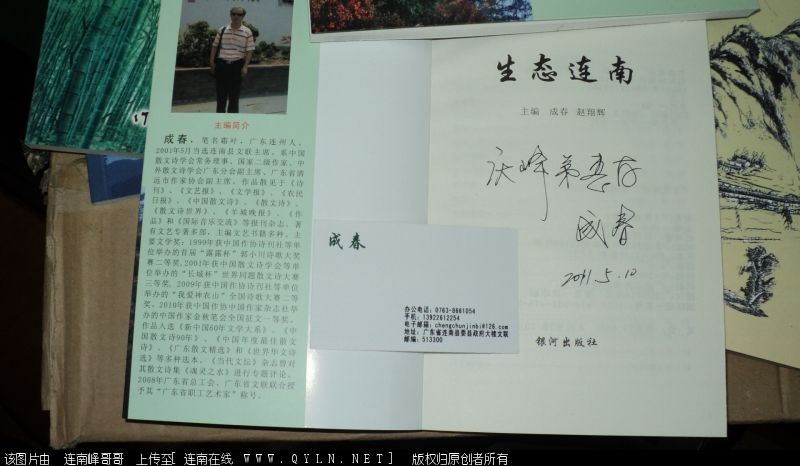 主编简介
成春，笔名霜叶，广东连州人，
2001年5月当选连南县文联主席，系中国
散文诗学会常务理事、国家二级作家、中
外散文诗学会广东分会副主席、广东省清
远市作家协会副主席。作品散见于《诗
刊》、《文艺报》、《文学报》、《农民
日报》、《中国散文诗》、《散文诗》、
《散文诗世界》、《羊城晚报》、《作
品》和《国际音乐交流》等报刊杂志。著
有文艺专著多部，主编文艺书籍多种。主
要文学奖：1999年获中国作协诗刊社等单
位举办的首届“露露杯”郭小川诗歌大奖
赛二等奖,2001年获中国散文诗学会等单
位举办的“长城杯”世界同题散文诗大赛
三等奖。2009年获中国作协诗刊社等单位
举办的“我爱神农山”全国诗歌大赛二等
奖。2010年获中国作协中国作家杂志社举
办的中国作家金秋笔会全国征文一等奖。
作品入选《新中国60年文学大系》、《中
国散文诗90年》、《中国年度最佳散文
诗》、《广东散文精选》和《世界华文诗
选》等多种选本。《当代文坛》杂志曾对
其散文诗集《魂灵之水》进行专题评论。
2008年广东省总工会、广东省文联联合授
予其“广东省职工艺术家”称号。
成春
办公电话：0763-8661054
手机：13922612254
电子邮箱：chengchunjinbi@126.com
地址：广东省连南县委县政府大楼文联
邮编：513300
生态连南
主编 成春 赵翔辉
庆峰弟惠存
成春
2011.5.10
银河出版社
该图片由 连南峰哥哥 上传至[ 连南在线 WWW.QYLN.NET] 版权归原创者所有